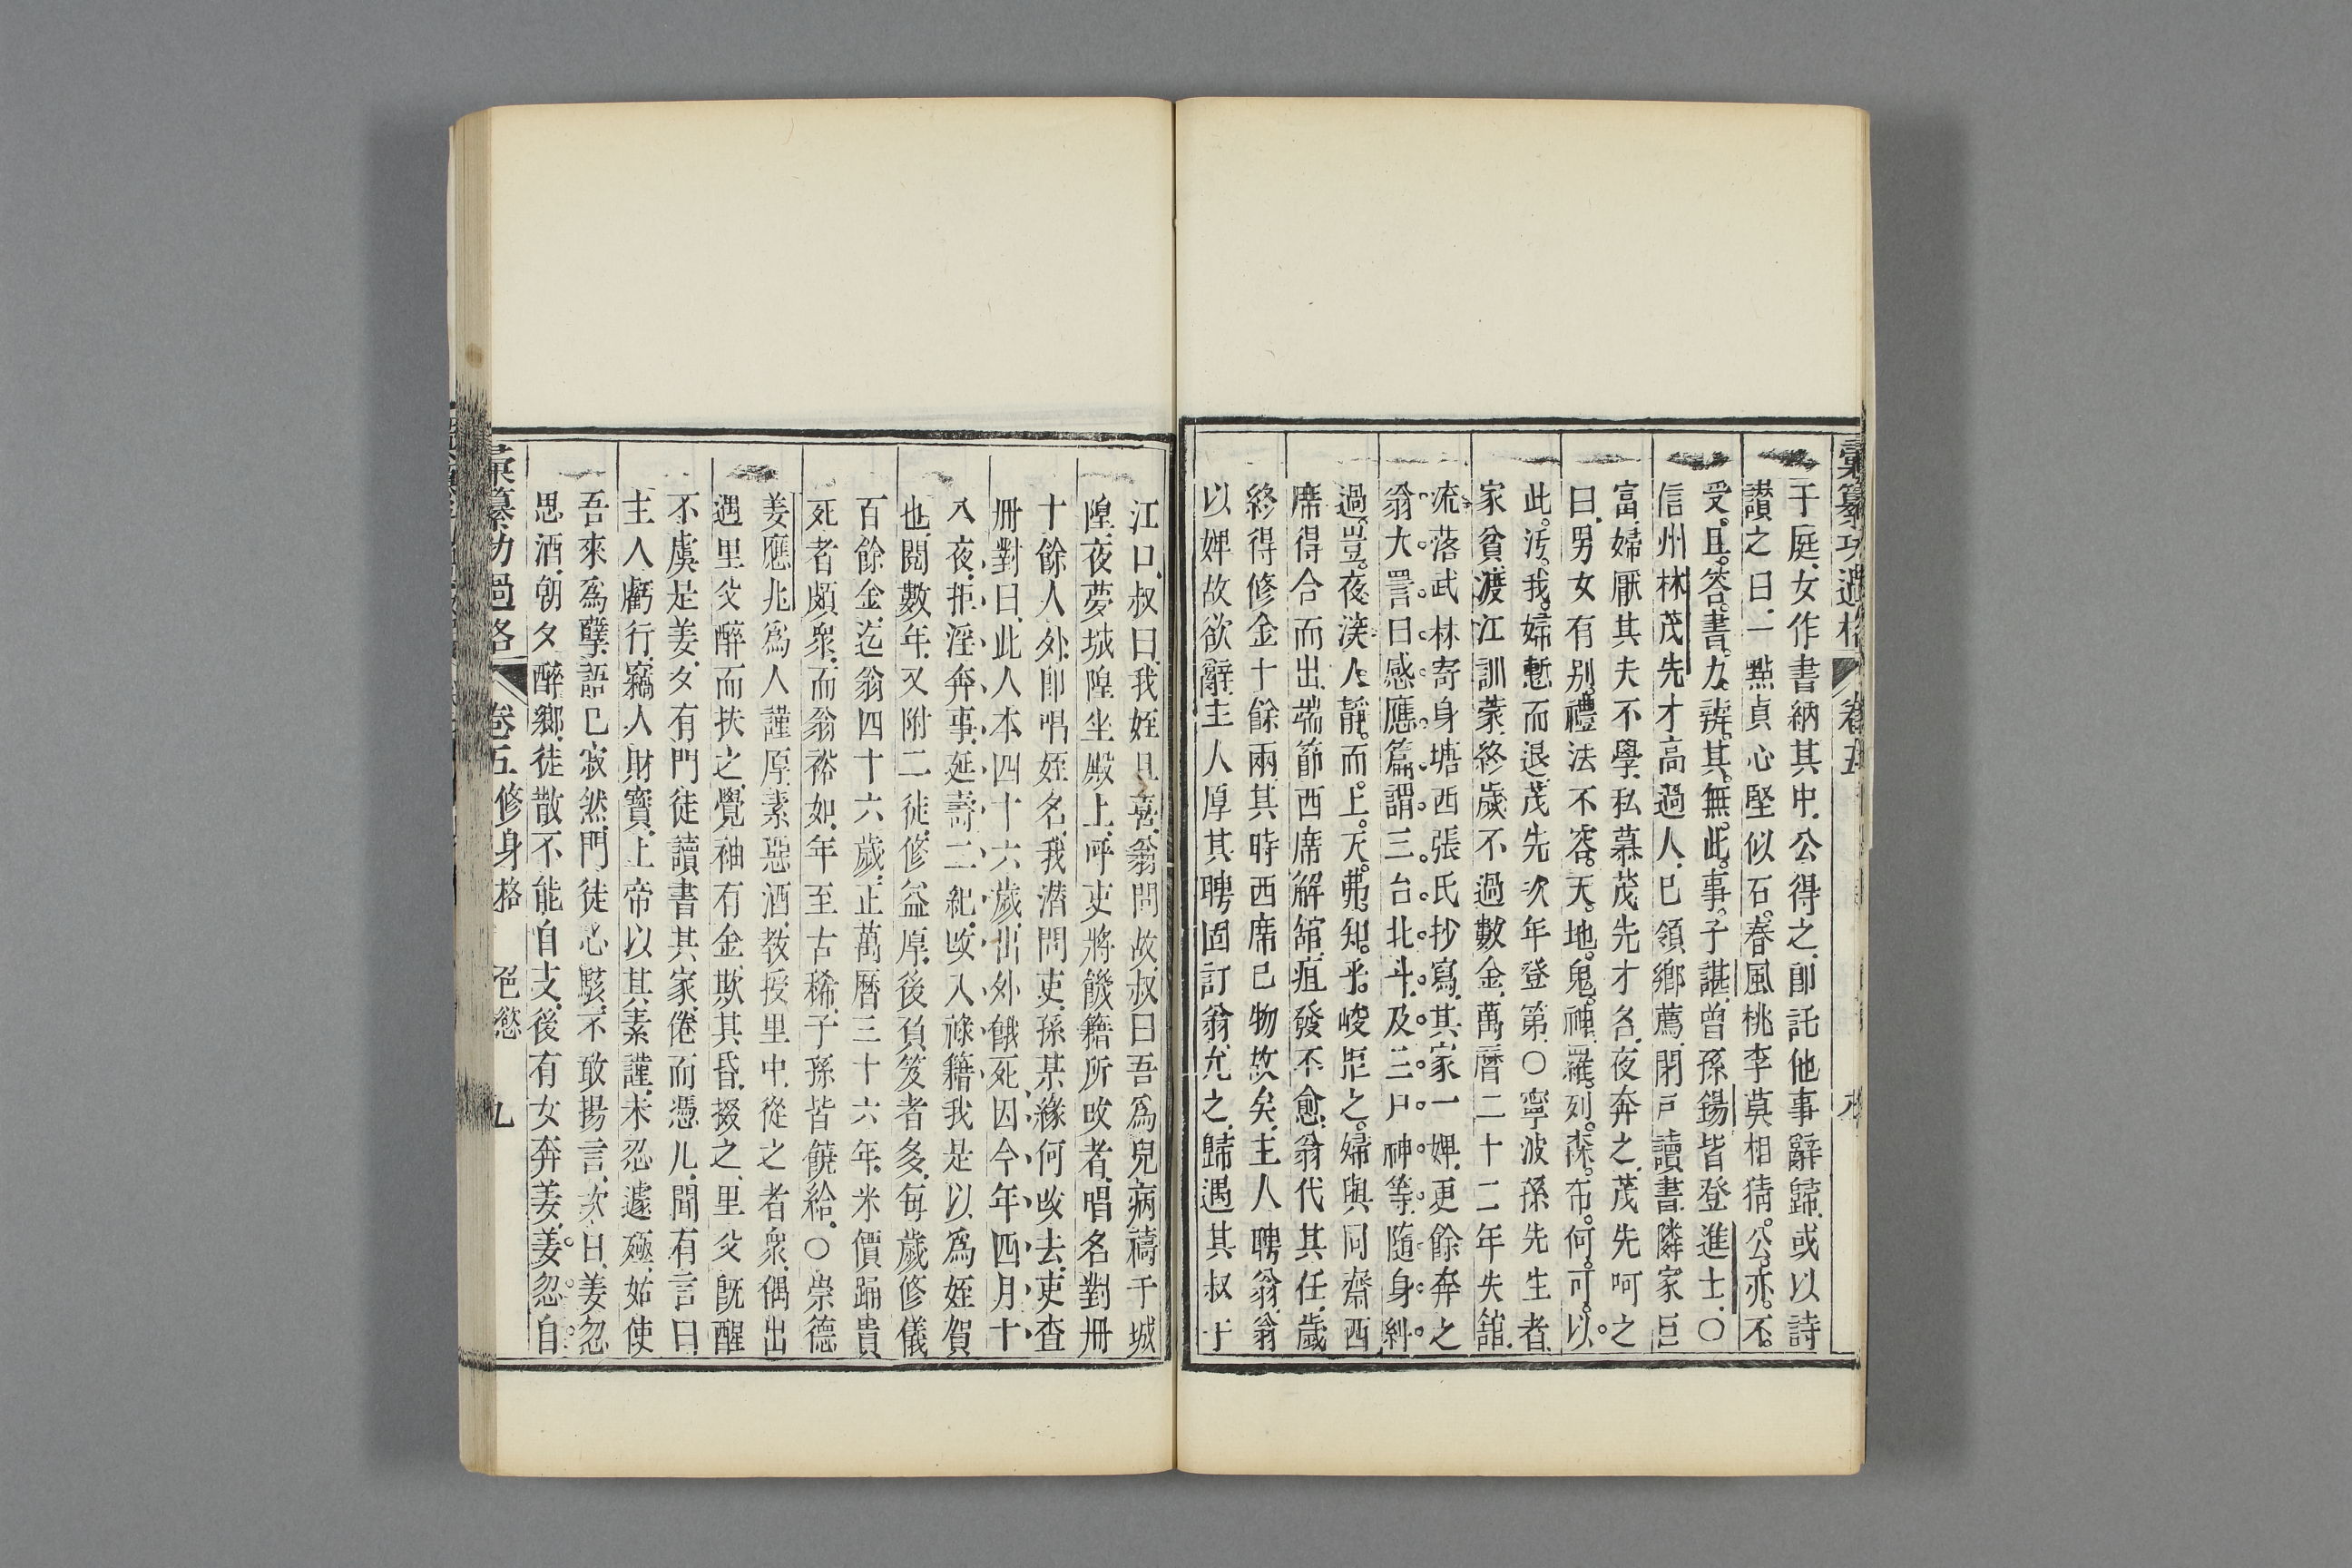 彙纂功過格 卷五
于庭女作書納其中公得之卽託他事辭歸或以詩
讃之曰一點貞心堅似石春風桃李莫相猜公亦不
受且答書力辨其無此事子諶曾孫錫皆登進士○
信州林茂先才高過人已領鄕薦閉戶讀書隣家巨
富婦厭其夫不學私慕茂先才名夜奔之茂先呵之
曰男女有别禮法不容天地鬼神羅列森布何可以
此汚我婦慙而退茂先次年登第○寧波孫先生者
家貧渡江訓蒙終歲不過數金萬曆二十二年失舘
流落武林寄身塘西張氏抄寫其家一婢更餘奔之
翁大詈曰感應篇謂三台北斗及三尸神等隨身糾
過豈夜深人靜而上天弗知乎峻拒之婦與同齋西
席得合而出端節西席解舘疽發不愈翁代其任歲
終得修金十餘兩其時西席已物故矣主人聘翁翁
以婢故欲辭主人厚其聘固訂翁允之歸遇其叔于
江口叔曰我姪且喜翁問故叔曰吾爲兒病禱于城
隍夜夢城隍坐殿上呼吏將饑籍所改者唱名對冊
十餘人外卽唱姪名我潛問吏孫某緣何改去吏查
冊對曰此人本四十六歲出外餓死因今年四月十
八夜拒淫奔事延壽二紀改入祿籍我是以爲姪賀
也閱數年又附二徒修益厚後負笈者多每歲修儀
百餘金迄翁四十六歲正萬曆三十六年米價踊貴
死者頗衆而翁裕如年至古稀子孫皆饒給○崇德
姜應兆爲人謹厚素惡酒教授里中從之者衆偶出
遇里父醉而扶之覺袖有金欺其昏掇之里父旣醒
不虞是姜夕有門徒讀書其家倦而憑几聞有言曰
主人虧行竊人財寶上帝以其素謹未忍遽殛姑使
吾來爲孽語已寂然門徒心駭不敢揚言次日姜忽
思酒朝夕醉鄉徒散不能自支後有女奔姜姜忽自
彙纂功過格 卷五 修身格 色慾 九